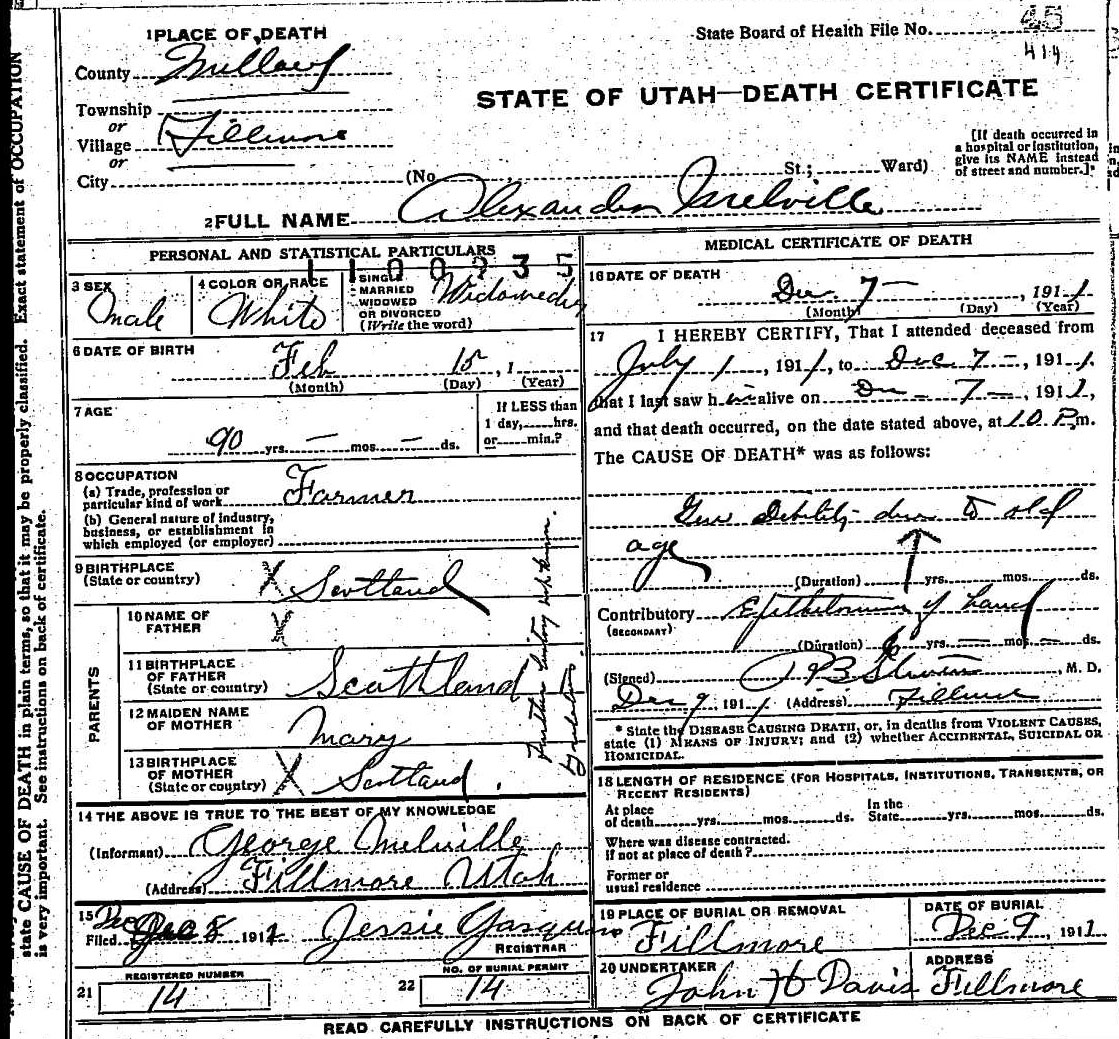 1 PLACE OF DEATH
State Board of Health File No. 45
414
County Millard
STATE OF UTAH—DEATH CERTIFICATE
Township
or
Village Fillmore
or
City (No. St.; Ward)
[If death occurred in
a hospital or institution,
give its NAME instead
of street and number.]*
2 FULL NAME Alexander Melville
PERSONAL AND STATISTICAL PARTICULARS
1100235
3 SEX
Male
4 COLOR OR RACE
White
5 SINGLE
MARRIED
WIDOWED
OR DIVORCED
(Write the word)
Widowed
6 DATE OF BIRTH
Feb 15, 1
(Month) (Day) (Year)
7 AGE
90 yrs. — mos. — ds.
If LESS than
1 day, hrs.
or min.?
8 OCCUPATION
(a) Trade, profession or
particular kind of work Farmer
(b) General nature of industry,
business, or establishment in
which employed (or employer)
9 BIRTHPLACE
(State or country) X Scotland
PARENTS
10 NAME OF
FATHER
11 BIRTHPLACE
OF FATHER
(State or country) Scottland
12 MAIDEN NAME
OF MOTHER Mary
13 BIRTHPLACE
OF MOTHER
(State or country) X Scotland.
Further history unknown.
14 THE ABOVE IS TRUE TO THE BEST OF MY KNOWLEDGE
(Informant) George Melville
(Address) Fillmore Utah
15 Dec
Filed 8 1911 Jessie
REGISTRAR
REGISTERED NUMBER
21 14
NO. OF BURIAL PERMIT
22 14
MEDICAL CERTIFICATE OF DEATH
16 DATE OF DEATH
Dec. 7 —, 1911
(Month) (Day) (Year)
17 I HEREBY CERTIFY, That I attended deceased from
July 1, 1911, to Dec 7 —, 1911.
that I last saw him alive on Dec — 7 —, 1911,
and that death occurred, on the date stated above, at 10 P.m.
The CAUSE OF DEATH* was as follows:
Gen Debility due to old
age
(Duration) yrs. mos. ds.
Contributory Epithelioma of hand
(SECONDARY)
(Duration) 6 yrs. — mos. — ds.
(Signed), M. D.
Dec 9, 1911 (Address) Fillmore
* State the DISEASE CAUSING DEATH, or, in deaths from VIOLENT CAUSES,
state (1) MEANS OF INJURY; and (2) whether ACCIDENTAL, SUICIDAL OR
HOMICIDAL.
18 LENGTH OF RESIDENCE (FOR HOSPITALS, INSTITUTIONS, TRANSIENTS, OR
RECENT RESIDENTS)
At place
of death yrs. mos. ds.
In the
State yrs. mos. ds.
Where was disease contracted.
If not at place of death?
Former or
usual residence
19 PLACE OF BURIAL OR REMOVAL
Fillmore
DATE OF BURIAL
Dec 9, 1911
20 UNDERTAKER
John H Davis
ADDRESS
Fillmore
READ CAREFULLY INSTRUCTIONS ON BACK OF CERTIFICATE
state CAUSE OF DEATH in plain terms, so that it may be properly classified. Exact statement of OCCUPATION
is very important. See instructions on back of certificate.